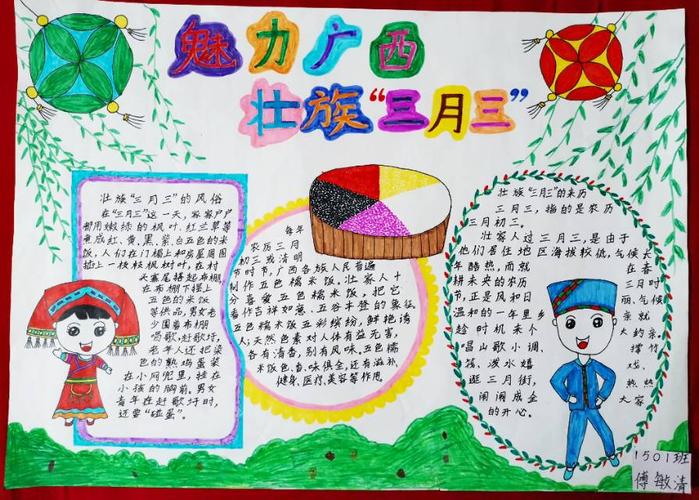 魅力广西
壮族“三月三”
壮族“三月三”的风俗
在“三月三”这一天,家家户户
都用嫩绿的枫叶、红兰草等
煮成红、黄、黑、紫、白五色的米
饭,人们在门楣上和房屋周围
插上一枝枝枫树叶,在村
头寨尾搭起布棚,
在布棚下摆上
五色的米饭
等供品,男女老
少围着布棚
唱歌,赶歌圩,
老年人还把染
色的熟鸡蛋装
在小网兜里,挂在
小孩的胸前,男女
青年在赶歌圩时,
还要“碰蛋”。
每年
农历三月
初三或清明
节时节,广西各族人民普遍
制作五色糯米饭,壮家人十
分喜爱五色糯米饭,把它
看作吉祥如意、五谷丰登的象征,
五色糯米饭五彩缤纷,鲜艳诱
人;天然色素对人体有益无害,
各有清香,别有风味。五色糯
米饭色、香、味俱全,还有滋补、
健身、医疗、美容等作用
壮族“三月三”的来历
三月三,指的是农历
三月初三。
壮家人过三月三,是由于
他们居住地区海拔较低,气候长
年酷热,而就 在春
耕未央的农历 三月时
节,正是风和日 丽、气候
温和的一年里
趁时机来个 大约
唱山歌小调、
筏、泼水嬉 戏、
逛三月街, 热热
闹闹成
的开心。
1501班
傅敏清